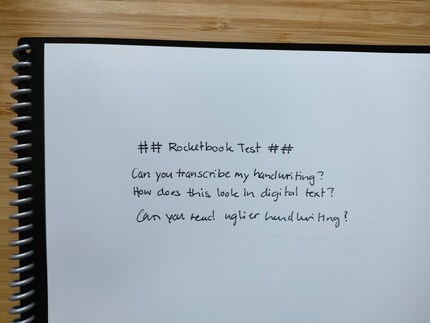 ## Rocketbook Test ##
Can you transcribe my handwriting?
How does this look in digital text?
Can you read uglier handwriting?